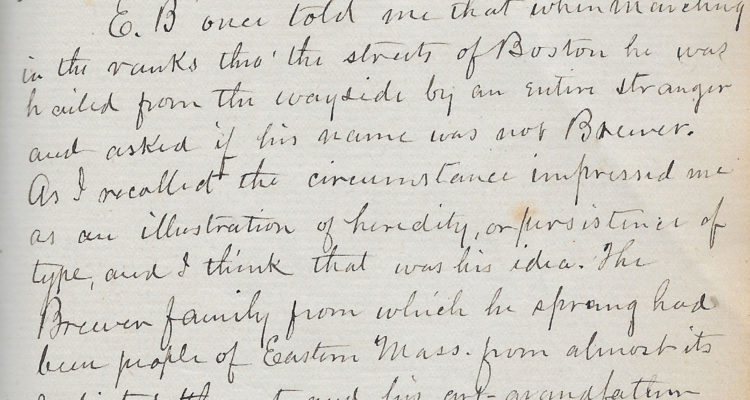 E. B once told me that when marching
in the ranks thro' the streets of Boston he was
hailed from the wayside by an entire stranger
and asked if his name was not Brewer.
As I recollect the circumstance impressed me
as an illustration of heredity, or persistence of
type, and I think that was his idea. The
Brewer family from which he sprang had
been people of Eastern Mass. from almost its
and his grt-grandfather